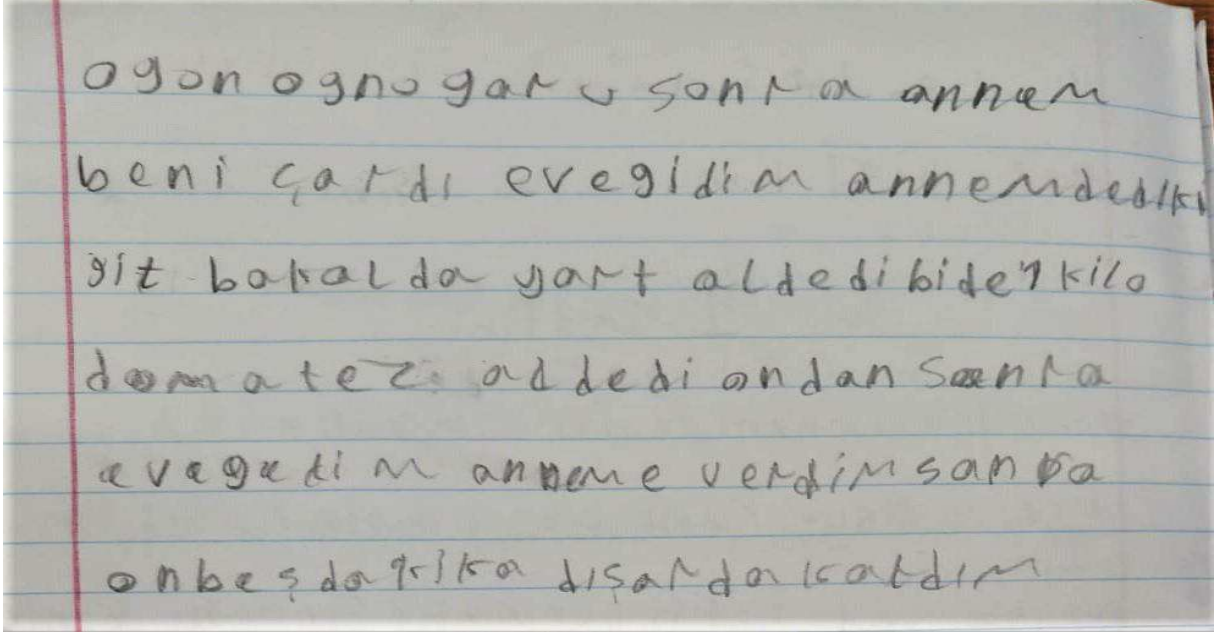 ogon ognogaru sonra annem
beni çardı evegidim annemdediki
git bakalda yart aldedi bide 1 kilo
domatez addedi ondan sonra
evegedim anneme verdim sanra
onbeş dakika dışarda katdım